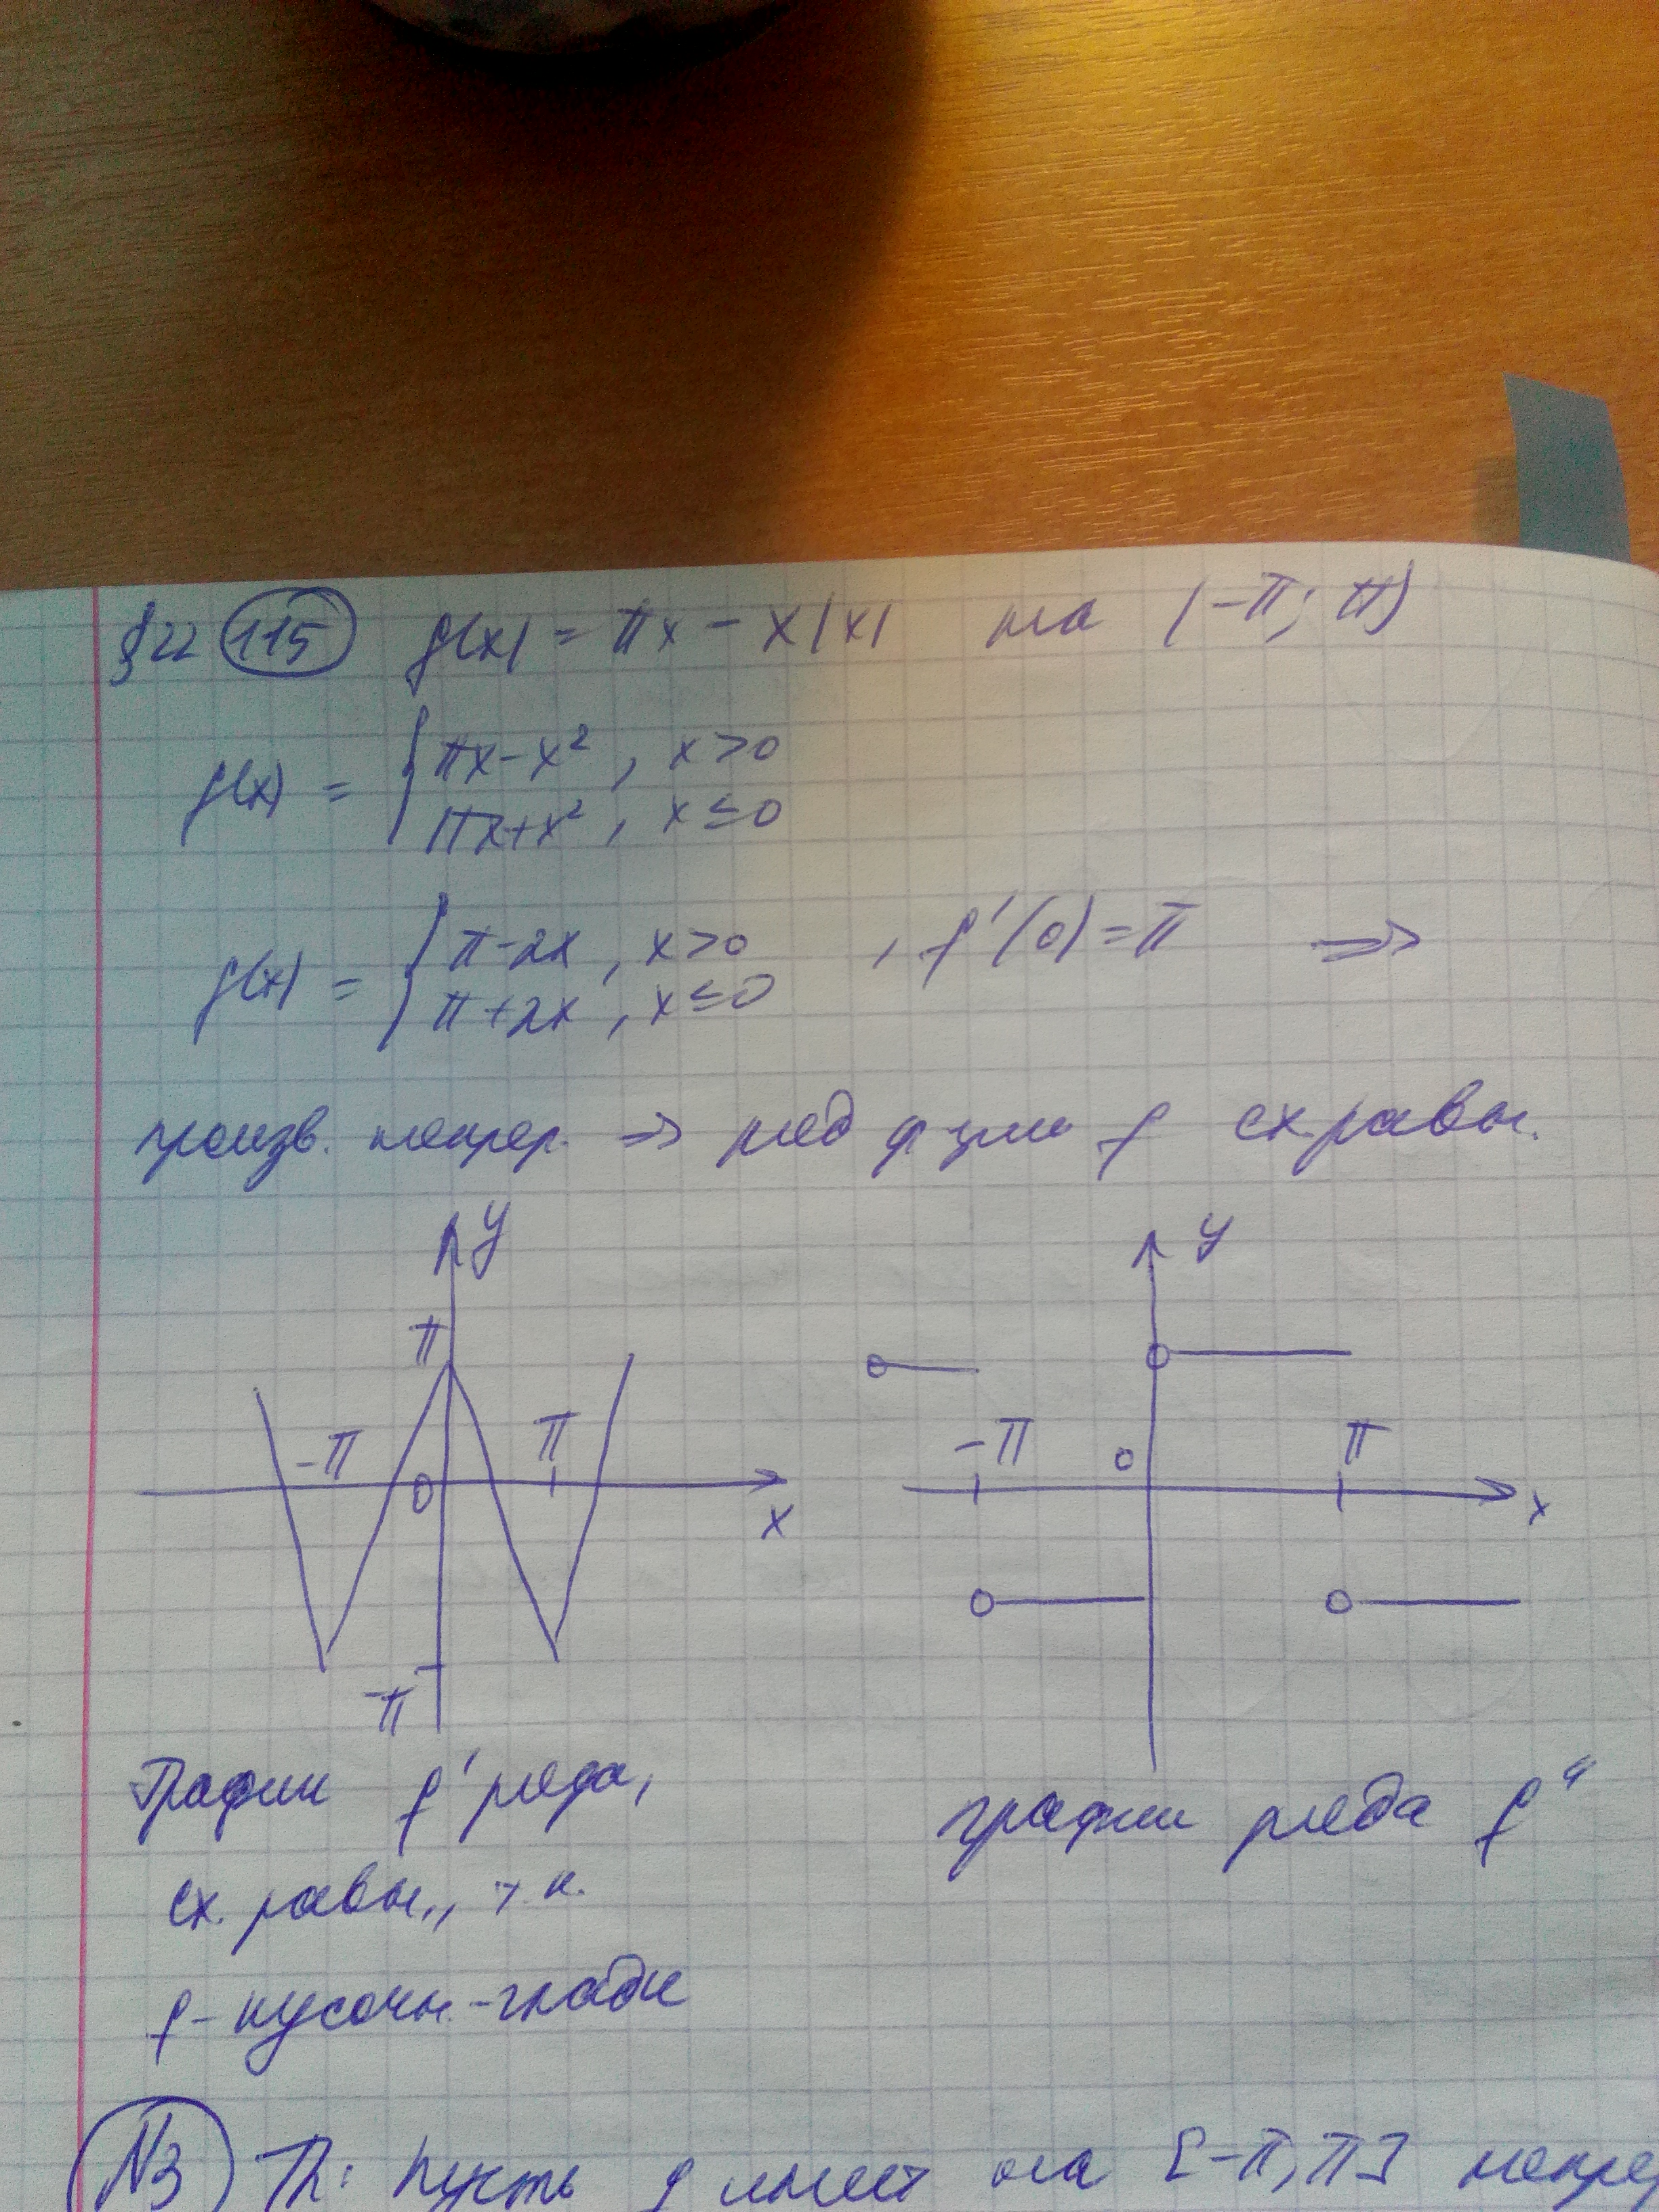 §22 (115) f(x) = πx - x|x| на (-π; π)
f(x) = { πx - x², x > 0
πx + x², x ≤ 0
f(x) = { π - 2x, x > 0 , f'(0) = π ⇒
π + 2x, x ≤ 0
произв. непрер. ⇒ ряд ф-ции f сх. равн.
y
π
-π π
0
x
-π
y
-π 0 π
x
График f' ряда,
сх. равн., т.к.
f - кусочн.-гладк
график ряда f''
N3 Th: Пусть f имеет на [-π, π] непре